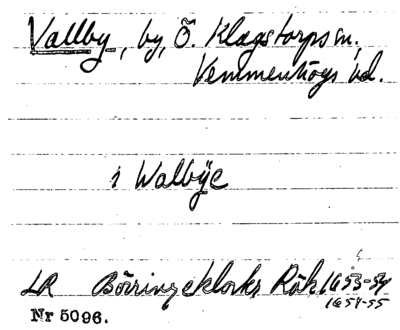 Vallby, by, Ö. Klagstorps sn,
Vemmenhögs hd.
i Walbÿe
LR Börringeklosters Räk 1653-54
1654-55
Nr 5096.